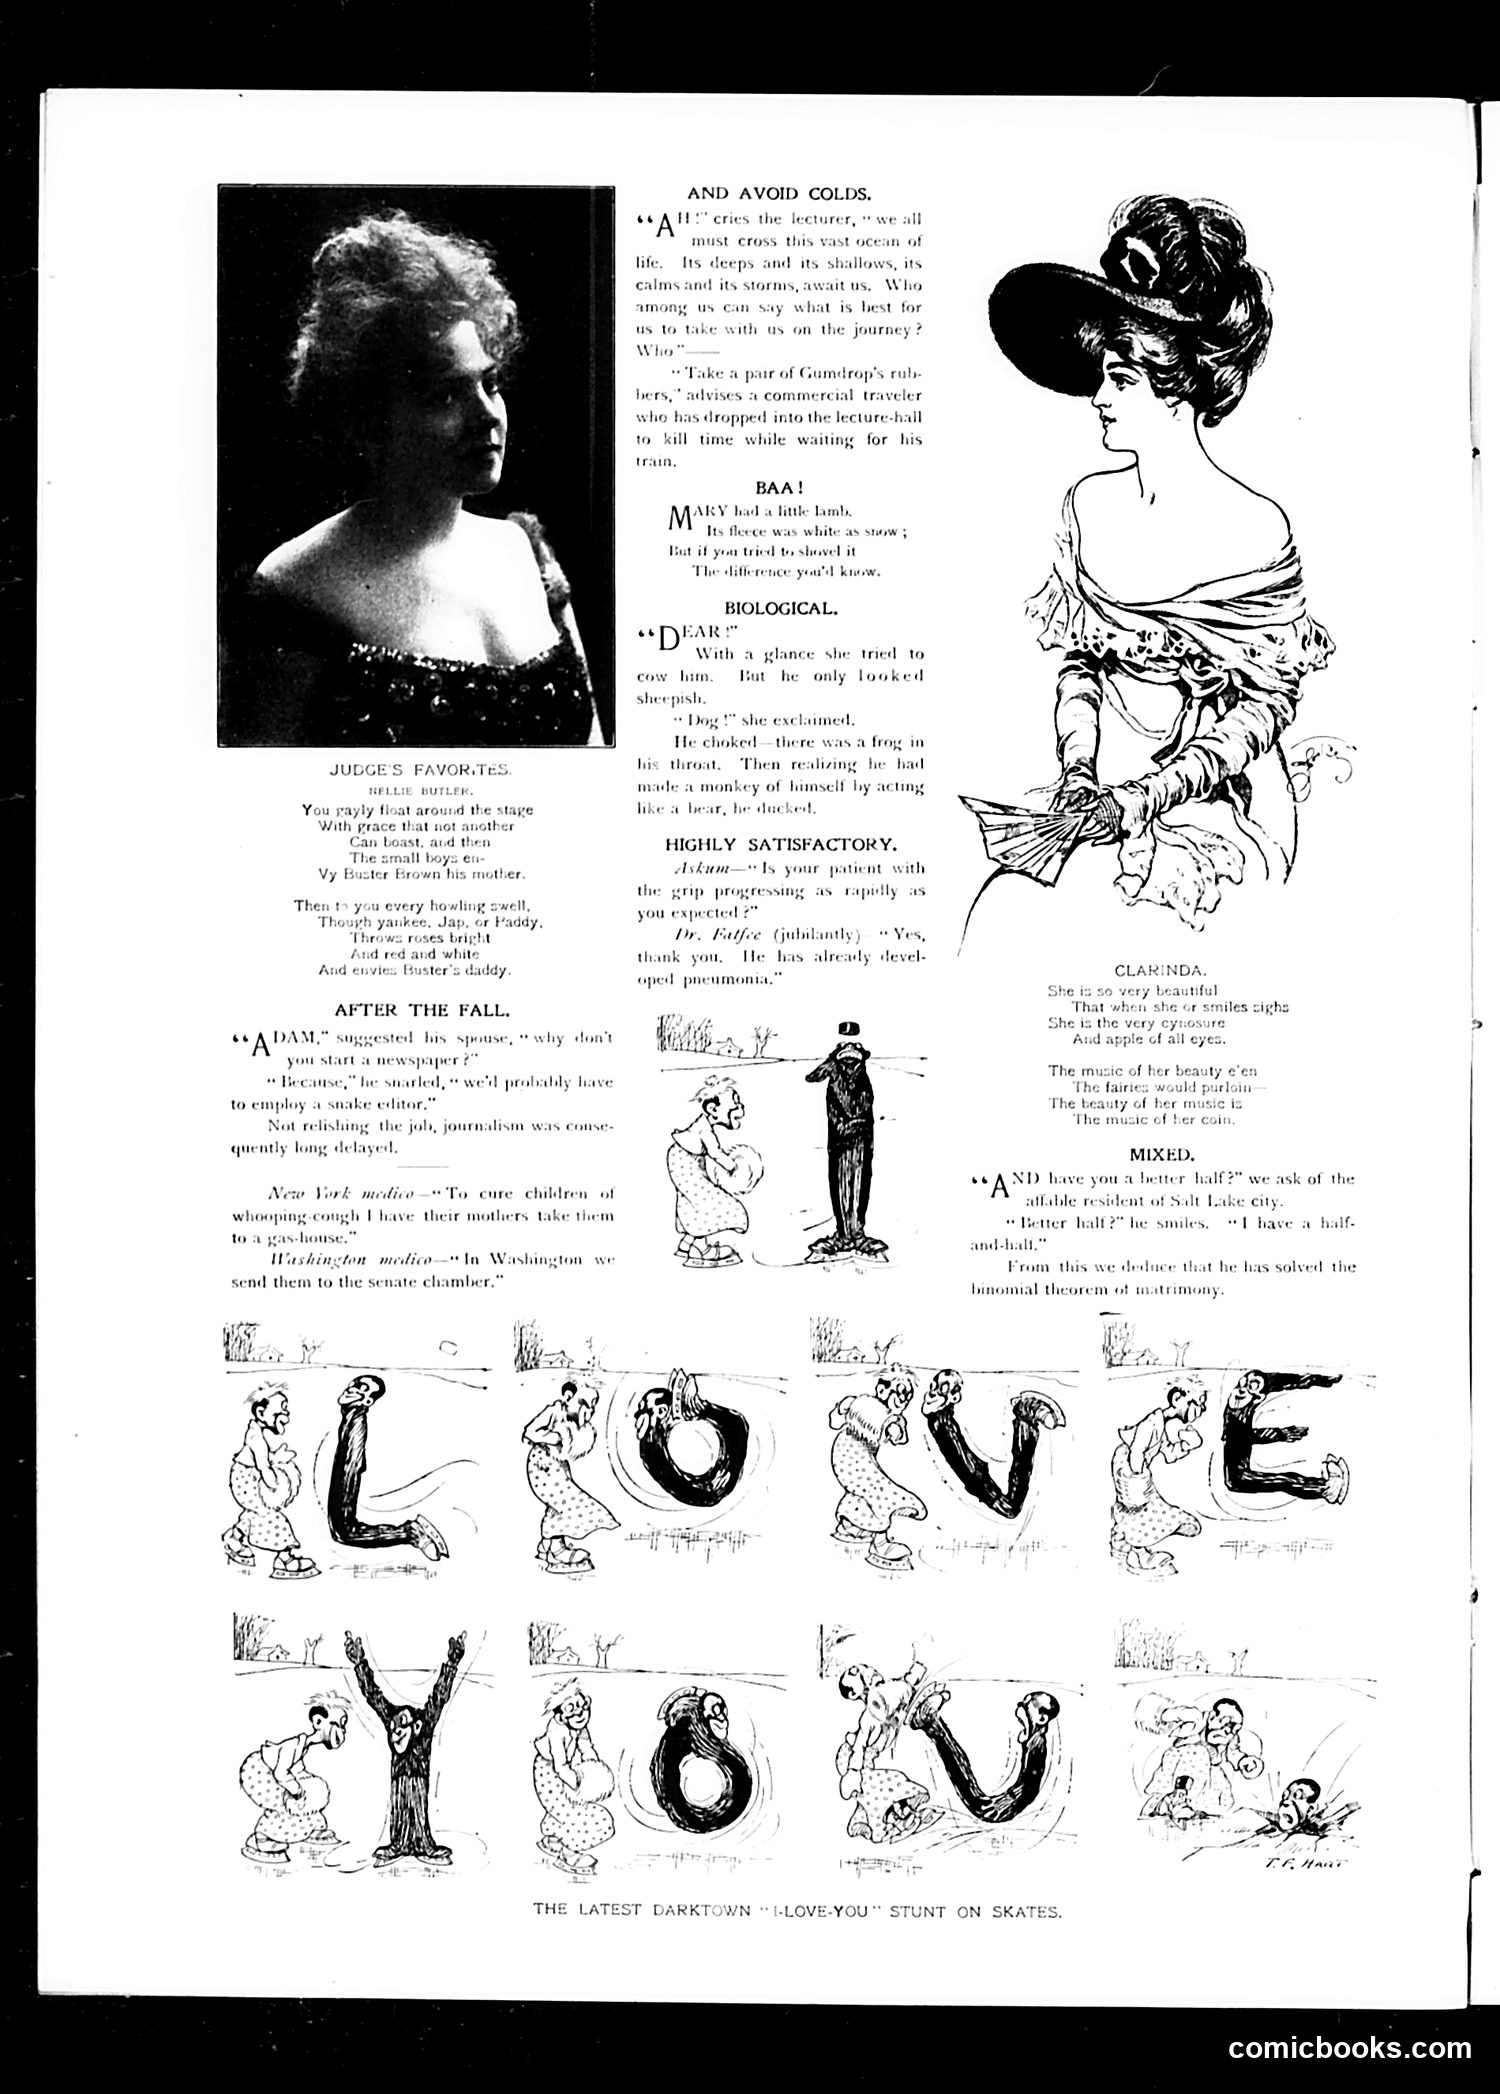 JUDGE'S FAVORITES.
NELLIE BUTLER.
You gayly float around the stage
With grace that not another
Can boast, and then
The small boys en-
Vy Buster Brown his mother.
Then to you every howling swell,
Though yankee, Jap, or Paddy,
Throws roses bright
And red and white
And envies Buster's daddy.
AFTER THE FALL.
“ADAM,” suggested his spouse, “why don't
you start a newspaper?”
“Because,” he snarled, “we'd probably have
to employ a snake editor.”
Not relishing the job, journalism was conse-
quently long delayed.
New York medico—“To cure children of
whooping-cough I have their mothers take them
to a gas-house.”
Washington medico—“In Washington we
send them to the senate chamber.”
AND AVOID COLDS.
“AH!” cries the lecturer, “we all
must cross this vast ocean of
life. Its deeps and its shallows, its
calms and its storms, await us. Who
among us can say what is best for
us to take with us on the journey?
Who”——
“Take a pair of Gumdrop's rub-
bers,” advises a commercial traveler
who has dropped into the lecture-hall
to kill time while waiting for his
train.
BAA!
MARY had a little lamb,
Its fleece was white as snow;
But if you tried to shovel it
The difference you'd know.
BIOLOGICAL.
“DEAR!”
With a glance she tried to
cow him. But he only looked
sheepish.
“Dog!” she exclaimed.
He choked—there was a frog in
his throat. Then realizing he had
made a monkey of himself by acting
like a bear, he ducked.
HIGHLY SATISFACTORY.
Askum—“Is your patient with
the grip progressing as rapidly as
you expected?”
Dr. Fatfee (jubilantly)—“Yes,
thank you. He has already devel-
oped pneumonia.”
CLARINDA.
She is so very beautiful
That when she or smiles sighs
She is the very cynosure
And apple of all eyes.
The music of her beauty e'en
The fairies would purloin—
The beauty of her music is
The music of her coin.
MIXED.
“AND have you a better half?” we ask of the
affable resident of Salt Lake city.
“Better half?” he smiles. “I have a half-
and-half.”
From this we deduce that he has solved the
binomial theorem of matrimony.
T. F. HART
THE LATEST DARKTOWN “I-LOVE-YOU” STUNT ON SKATES.
comicbooks.com